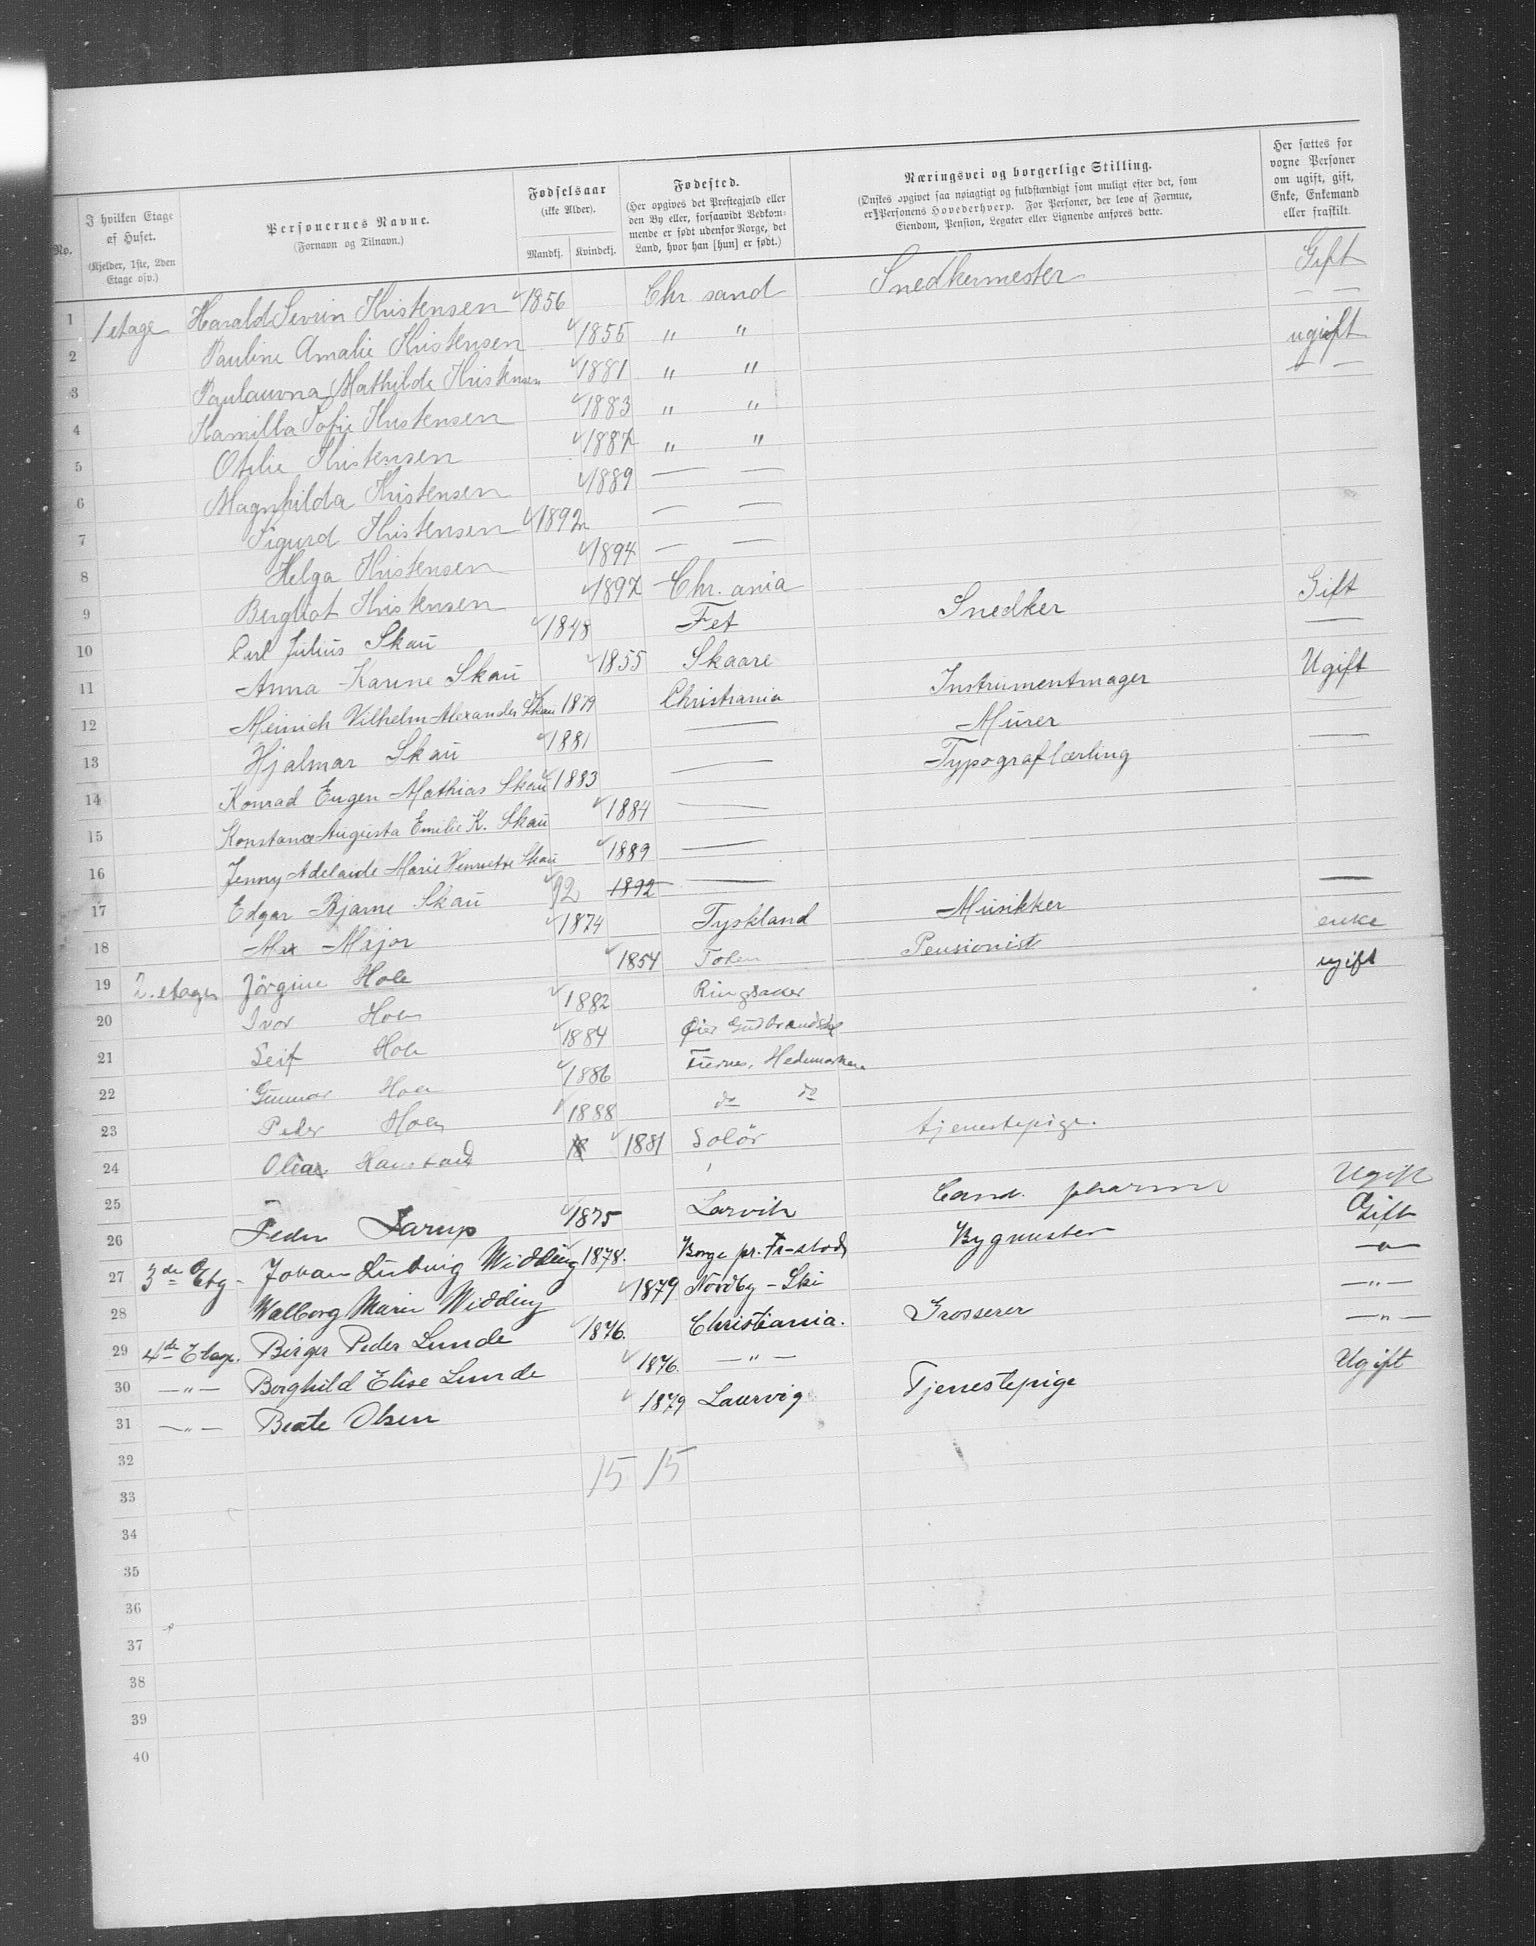 No.
I hvilken Etage af Huset.
(Kjelder, 1ste, 2den Etage osv.)
Personernes Navne.
(Fornavn og Tilnavn.)
Fødselsaar
(ikke Alder).
Mandkj. Kvindekj.
Fødested.
(Her opgives det Prestegjæld eller den By eller, forsaavidt Vedkommende er født udenfor Norge, det Land, hvor han [hun] er født.)
Næringsvei og borgerlige Stilling.
(Ønskes opgivet saa nøiagtigt og fuldstændigt som muligt efter det, som er Personens Hovederhverv. For Personer, der leve af Formue, Eiendom, Pension, Legater eller Lignende anføres dette.
Her sættes for voxne Personer om ugift, gift, Enke, Enkemand eller fraskilt.
1 1 etage Harald Sevrin Kristensen 1856 Chr sand Snedkermester Gift
2 Pauline Amalie Kristensen 1855 " " — —
3 Mathilde Kristensen 1881 " " ugift
4 Kamilla Sofie Kristensen 1883 " " — —
5 Otilie Kristensen 1887 " "
6 Magnhilda Kristensen 1889 — —
7 Sigurd Kristensen 1892 — —
8 Helga Kristensen 1894 — —
9 Bergliot Kristensen 1897 Chr. ania
10 Carl Julius Skau 1848 Fet Snedker Gift
11 Anna Karine Skau 1855 Skaare —
12 Meinich Vilhelm Alexander Skau 1879 Christiania Instrumentmager Ugift
13 Hjalmar Skau 1881 — Murer —
14 Konrad Eugen Mathias Skau 1883 — Typograflærling —
15 Konstance Augusta Emilie K. Skau 1884 —
16 Jenny Adelaide Marie Henriette Skau 1889 —
17 Edgar Bjarne Skau 92 1892 —
18 Max Major 1874 Tyskland Musikker —
19 2. etage Jörgine Hole 1854 Toten Pensionist enke
20 Ivor Hole 1882 Ringsaker ugift
21 Leif Hole 1884 Øier Gudbrandsdal
22 Gunnar Hole 1886 Furnes, Hedemarken
23 Peder Hole 1888 do do
24 Haustad 1881 Solör tjenestepige.
25
26 Peder Jarup 1875 Larvik Cand. pharm Ugift
27 3de Etg - Johan Ludvig Widding 1878. Borge pr. Fr-stad Bygmester Gift
28 Walborg Marie Widding 1879 Nordby - Ski — " —
29 4de Etage. Birger Peder Lunde 1876. Christiania. Grosserer — " —
30 — " — Borghild Elise Lunde 1876. — " — — " —
31 — " — Beate Olsen 1879 Laurvig Tjenestepige Ugift
32
33 15 15
34
35
36
37
38
39
40